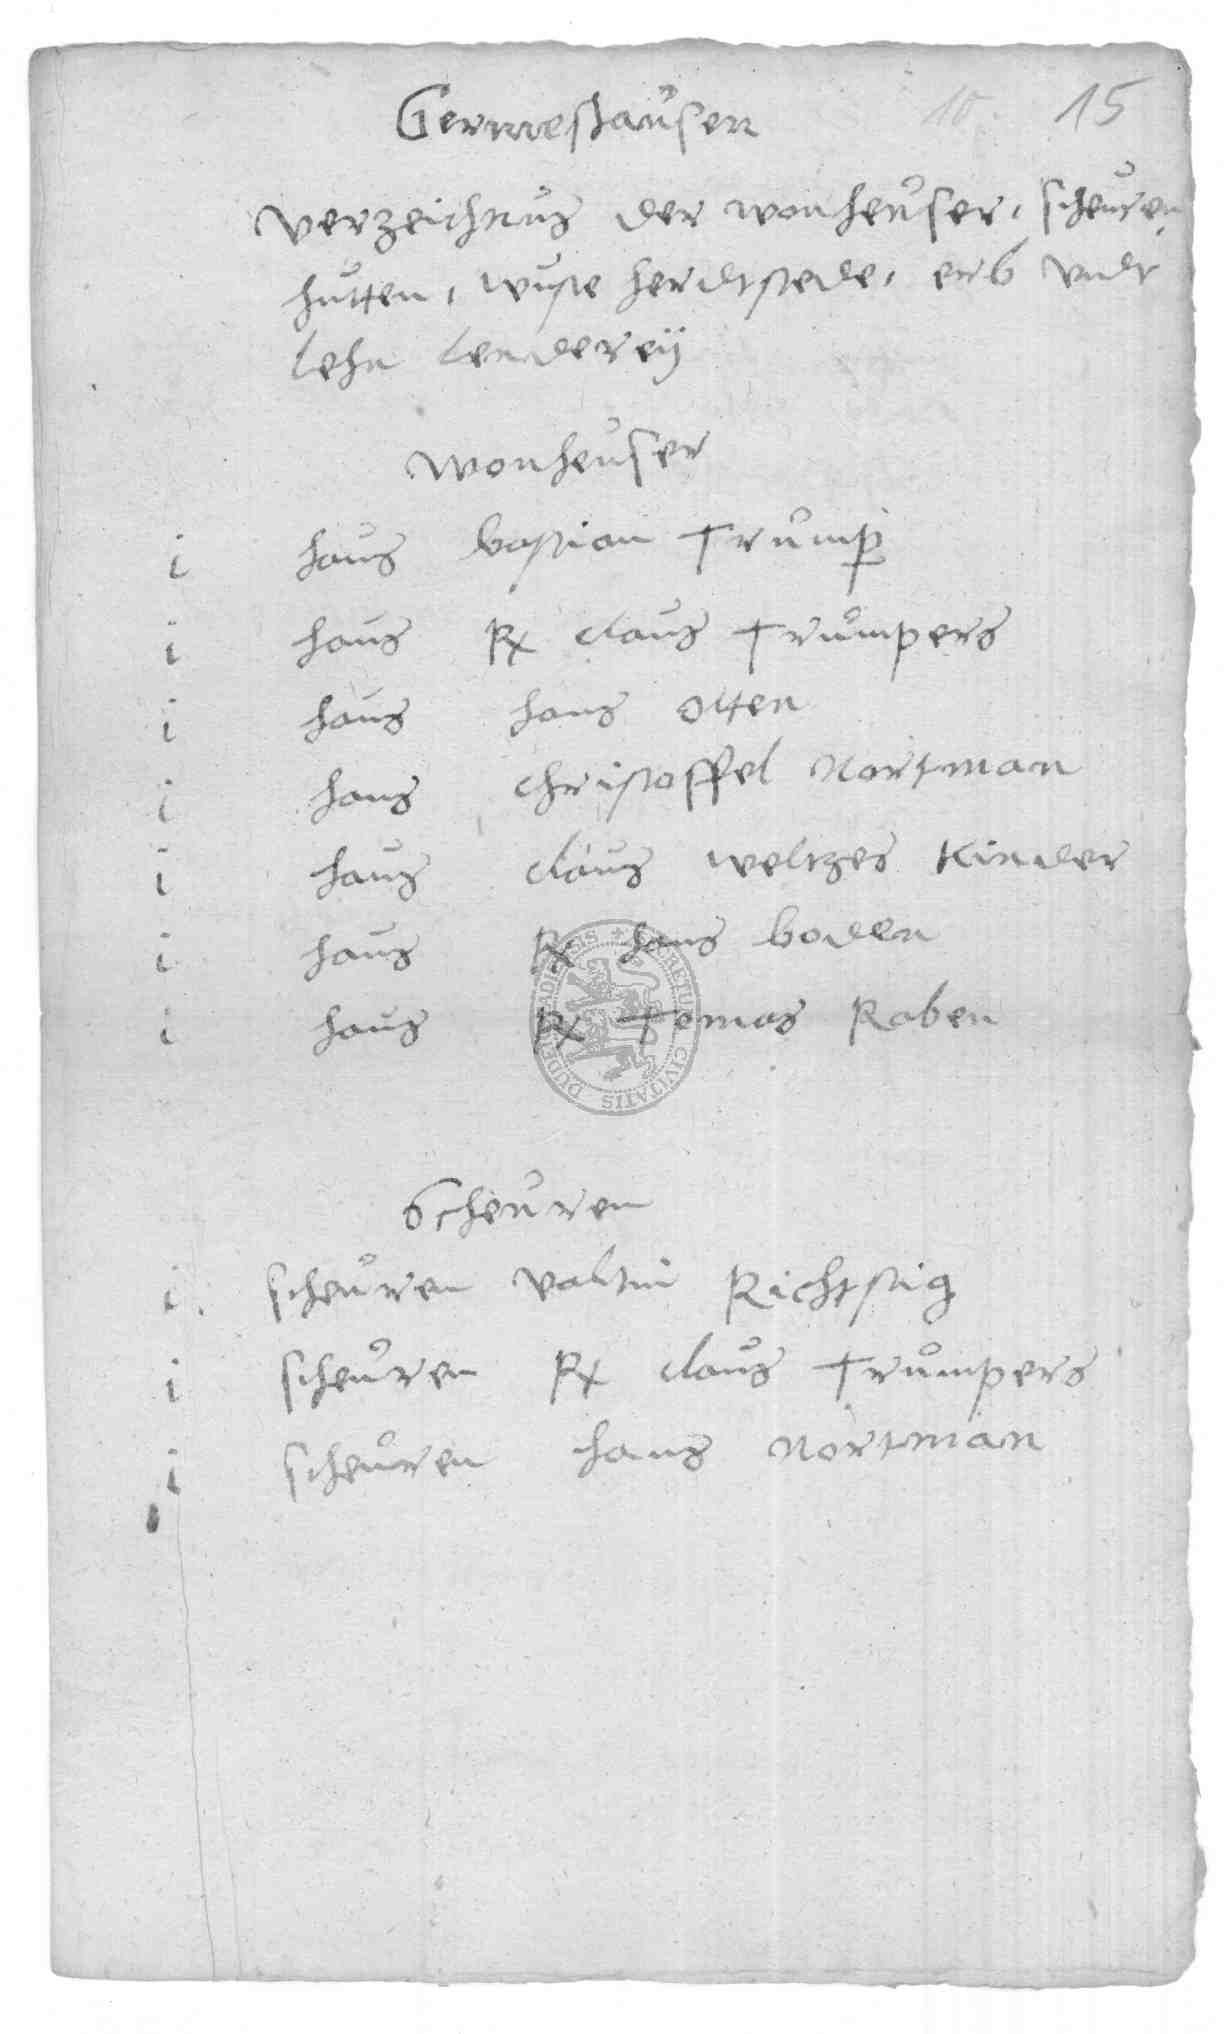 Germeshausen
10. 15
Verzeichnus der wonheuser, scheuren,
hutten, wuste herdtstede, erb vndt
lehn lenderey
Wonheuser
i haus bastian Trump
i haus Rx claus Trumpers
i haus hans Otten
i haus Christoffel Nortman
i haus claus weltzes Kinder
i haus Rx hans boden
i haus Rx Tomas Raben
Scheuren
i. scheuren valtin Richstig
i scheuren Rx claus Trumpers
i scheuren hans Nortman